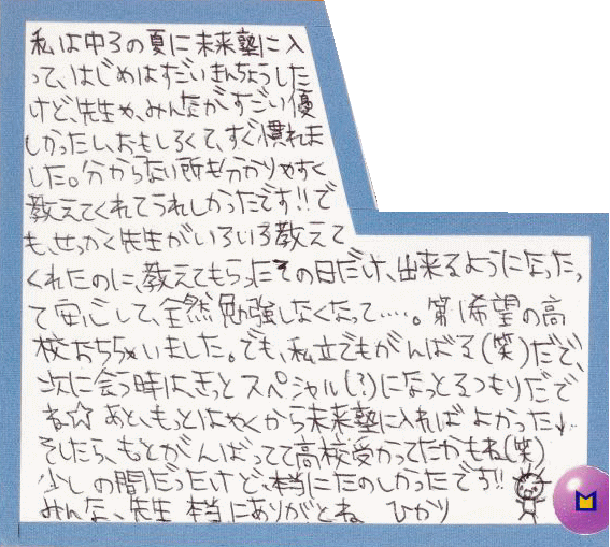 私は中3の夏に未来塾に入
って、はじめはすごいきんちょうした
けど、先生や、みんながすごい優
しかったし、おもしろくて、すぐ慣れま
した。分からない所も分かりやすく
教えてくれてうれしかったです!!で
も、せっかく先生がいろいろ教えて
くれたのに、教えてもらったその日だけ、出来るようになったっ
て安心して、全然勉強しなくなって……。第1希望の高
校おちちゃいました。でも、私立でもがんばる(笑)だで、
次に会う時は、きっとスペシャル(?)になっとるつもりだで
ね☆ あと、もっとはやくから未来塾に入ればよかった↓…
そしたら、もっとがんばってて高校受かってたかもね(笑)
少しの間だったけど、本当にたのしかったです!!
みんな、先生 本当にありがとね ひかり